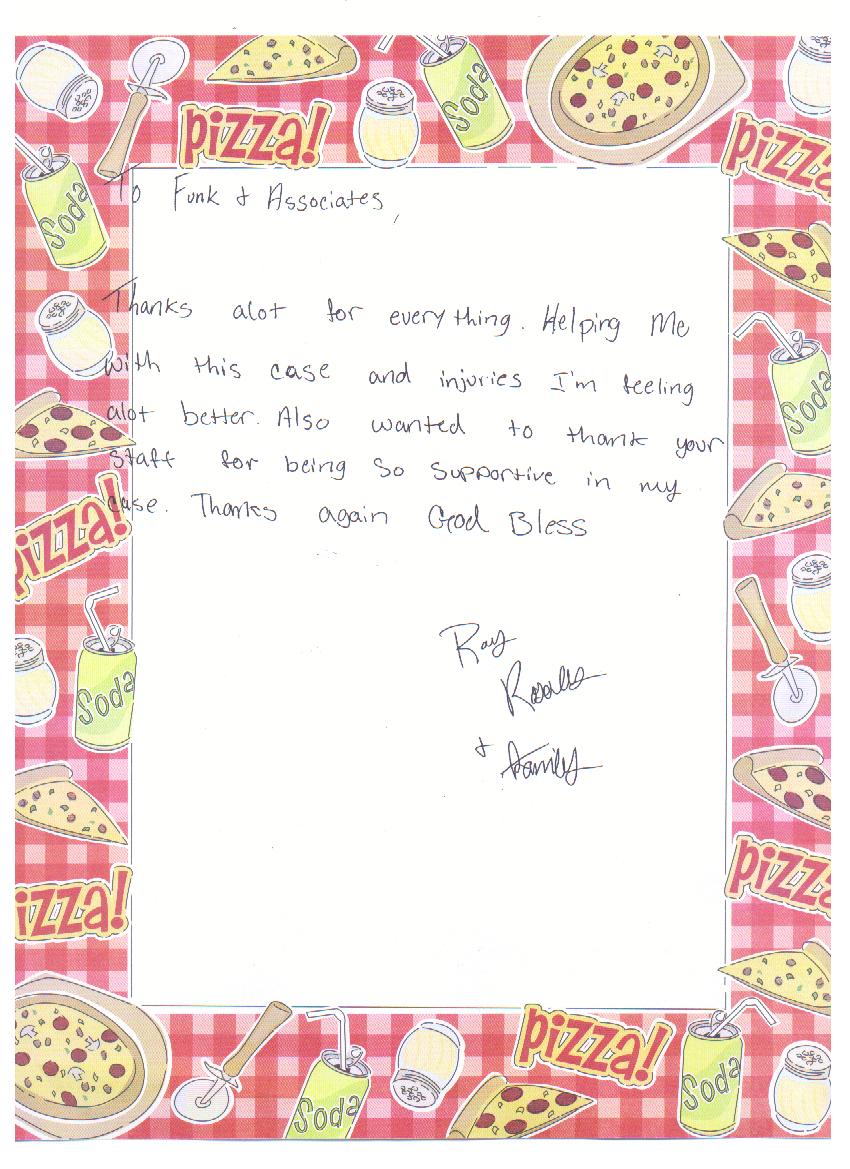 Soda
pizza!
pizza
Soda
To Funk & Associates,
Thanks alot for everything. Helping Me
with this case and injuries I'm feeling
alot better. Also wanted to thank your
staff for being so supportive in my
case. Thanks again God Bless
Soda
pizza!
Ray
Rosales
& family
Soda
pizza
izza!
pizza!
Soda
Soda